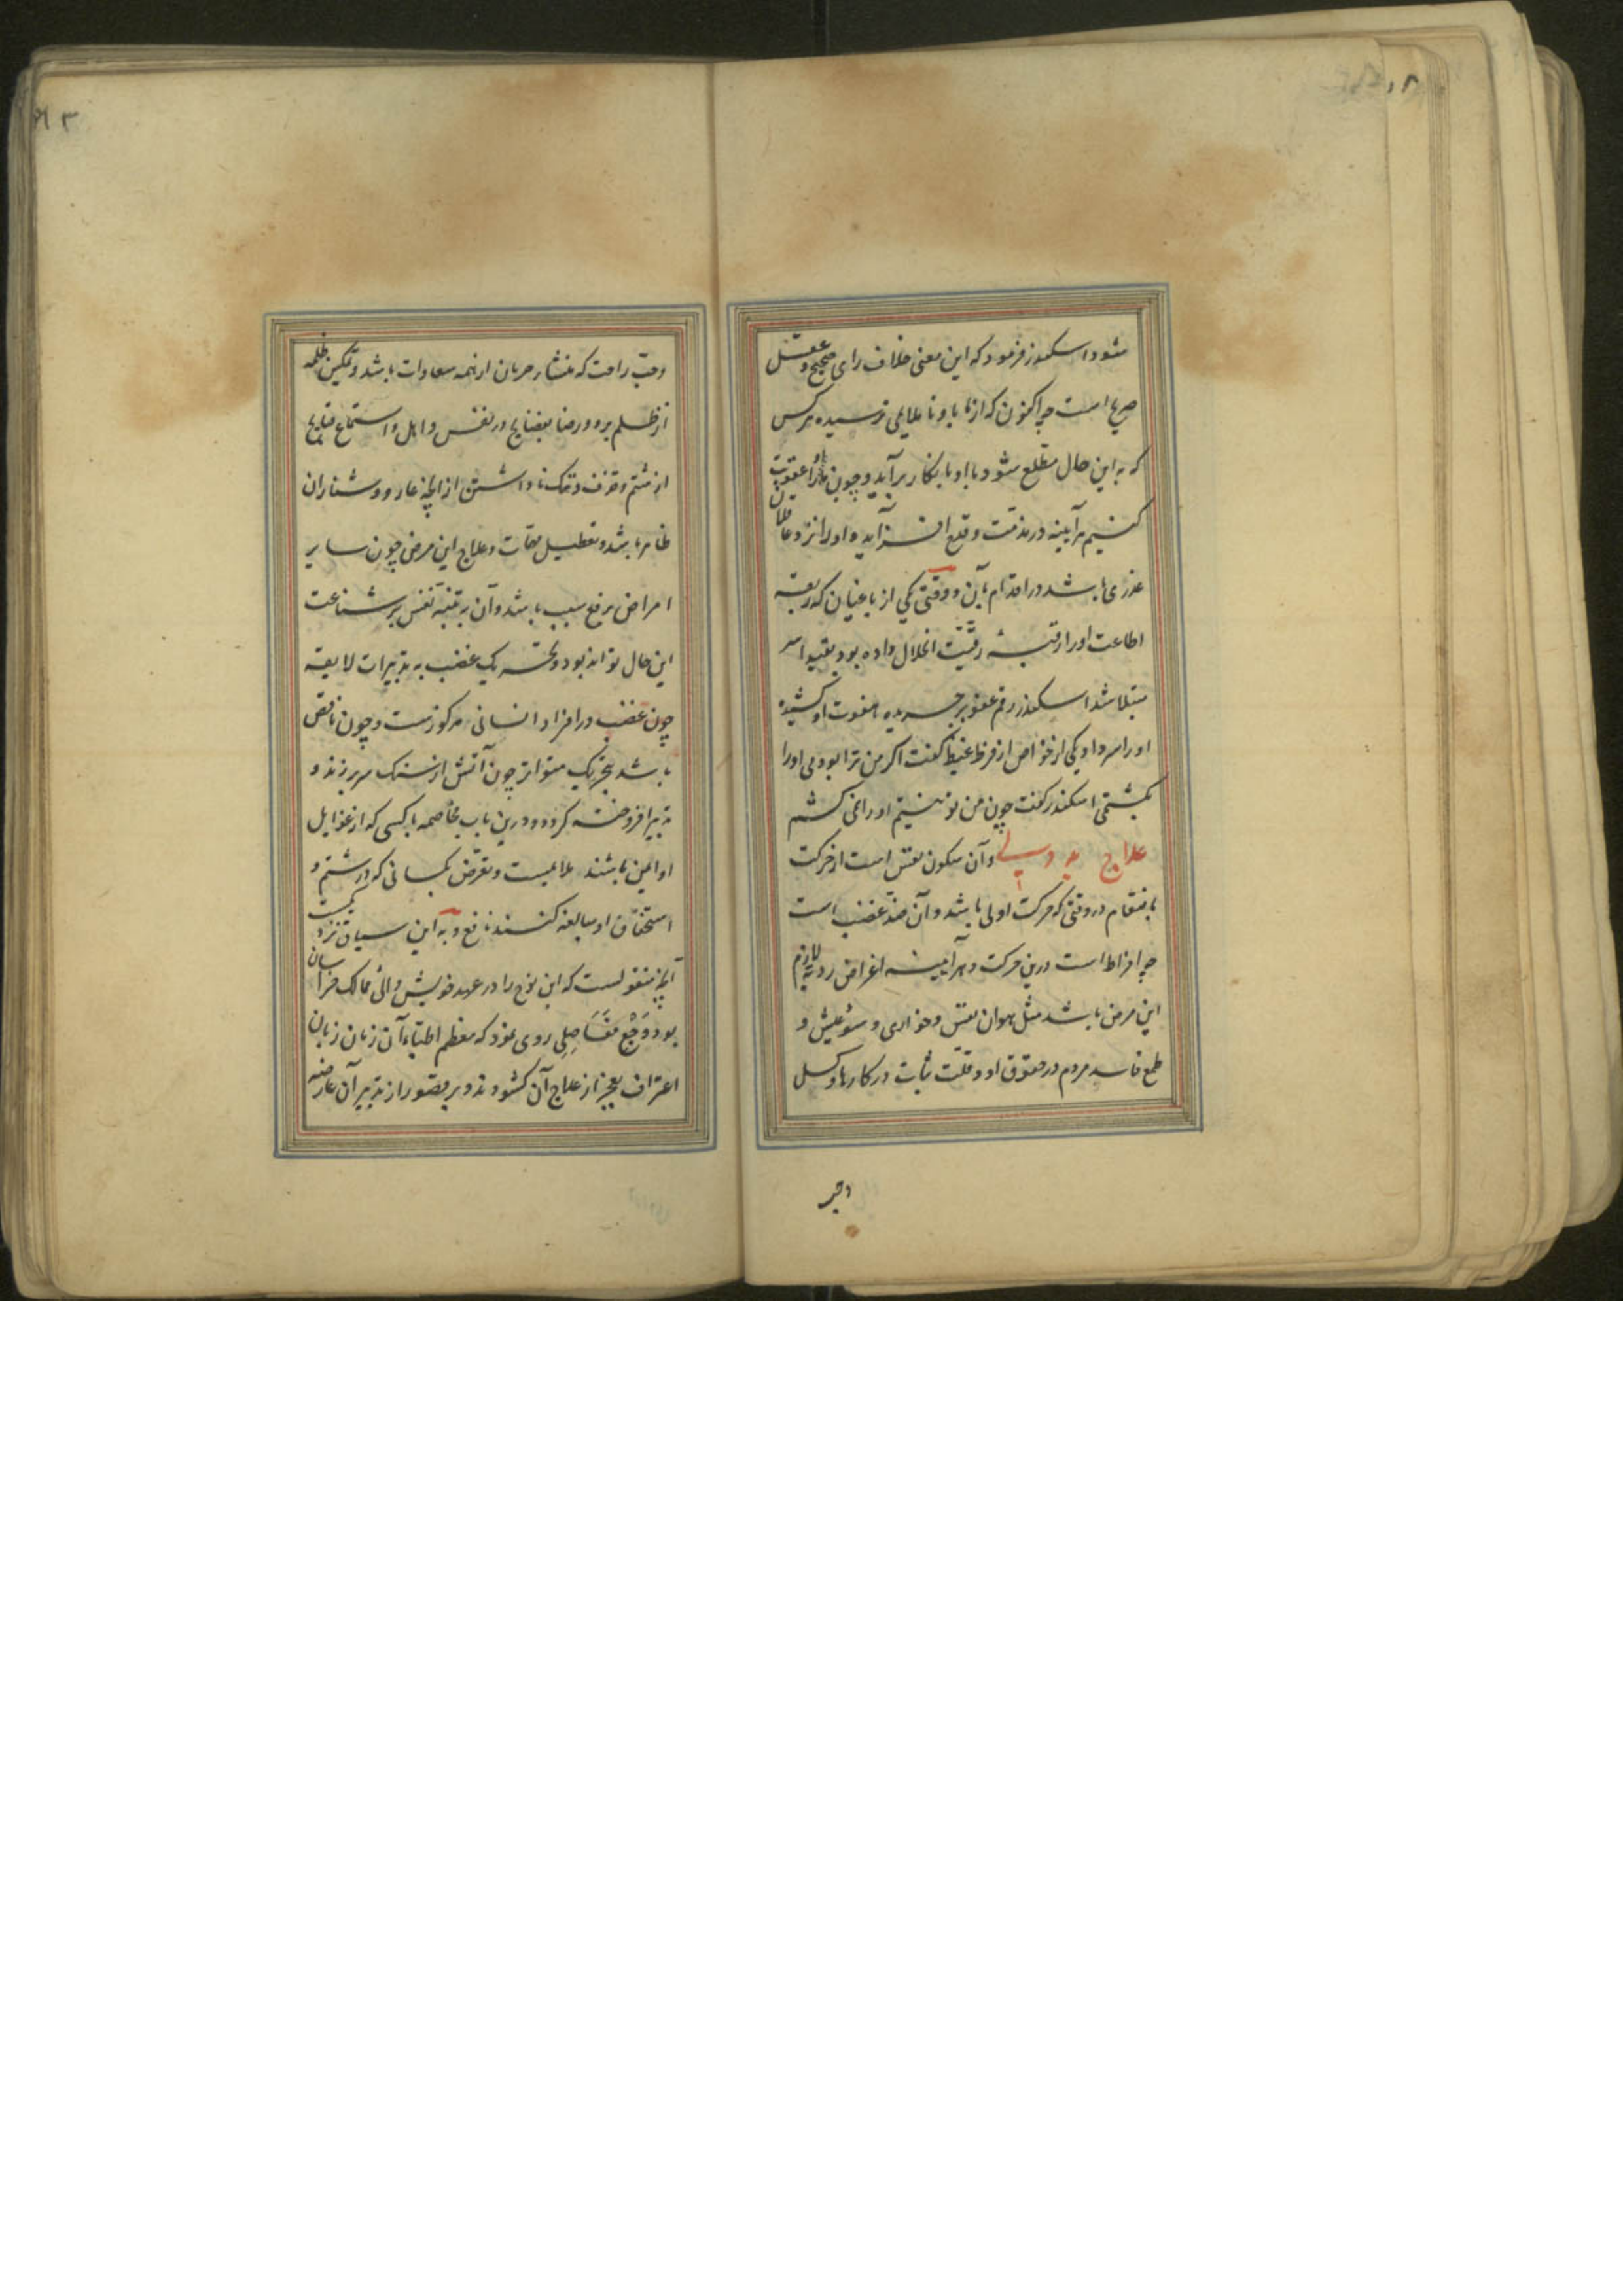 شود اسکندر فرمود که این معنی خلاف رای صحیح و عقل
صریح است چه اکنون که از ما باو ناملایمی نرسیده هر کس
که به این حال مطلع شود با او بانکار برآید و چون ما او را عقوبت
کنیم هر آینه در مذمت و قدح افزاید و او را نزد عاقلان
عذری باشد در اقدام بآن و وقتی یکی از باغیان که ربقه
اطاعت او را از رقبه رقیّت انحلال داده بود بقید اسر
مبتلا شد اسکندر رقم عفو بر جریده هفوت او کشیده
او را سر داد یکی از خواص از فرط غیظ گفت اگر من ترا بودمی او را
بکشتمی اسکندر گفت چون من تو نیستم او را نمی کشم
علاج بد دلی و آن سکون نفس است از حرکت
بانتقام در وقتی که حرکت اولی باشد و آن ضد غضب است
چه افراط است درین حرکت و هر آینه اغراض ردیه لازم
این مرض باشد مثل هوان نفس و خواری و سوء عیش و
طمع فاسد مردم در حقوق او و قلت ثبات در کارها و کسل
وحب
وحبّ راحت که منشاء حرمان از همه سعادات باشد و تمکین ظلمه
از ظلم برو و رضا بفضایح در نفس و اهل و استماع قبایح
از شتم و قذف و ننگ نا داشتن از آنچه عار و شنار آن
ظاهر باشد و تعطیل مهمات و علاج این مرض چون سایر
امراض برفع سبب باشد و آن به تنبیه نفس بر شناعت
این حال تواند بود و تحریک غضب به تدبیرات لایقه
چون غضب در افراد انسانی مرکوزست و چون ناقص
باشد بتحریک متواتر چون آتش از سنگ سر بر زند و
بتدبیر افروخته گردد و درین باب مخاصمه با کسی که از غوایل
او ایمن باشند ملایمست و تعرّض بکسانی که در شتم و
استخفاف او مبالغه کنند نافع و به این سیاق نزدیکست
آنچه منقولست که ابن نوح را در عهد خویش والی ممالک خراسان
بود وَجَع مفَاصِلِی روی نمود که معظم اطبّاء آن زمان زبان
اعتراف بعجز از علاج آن گشودند و بر قصور از تدبیر آن عارضه